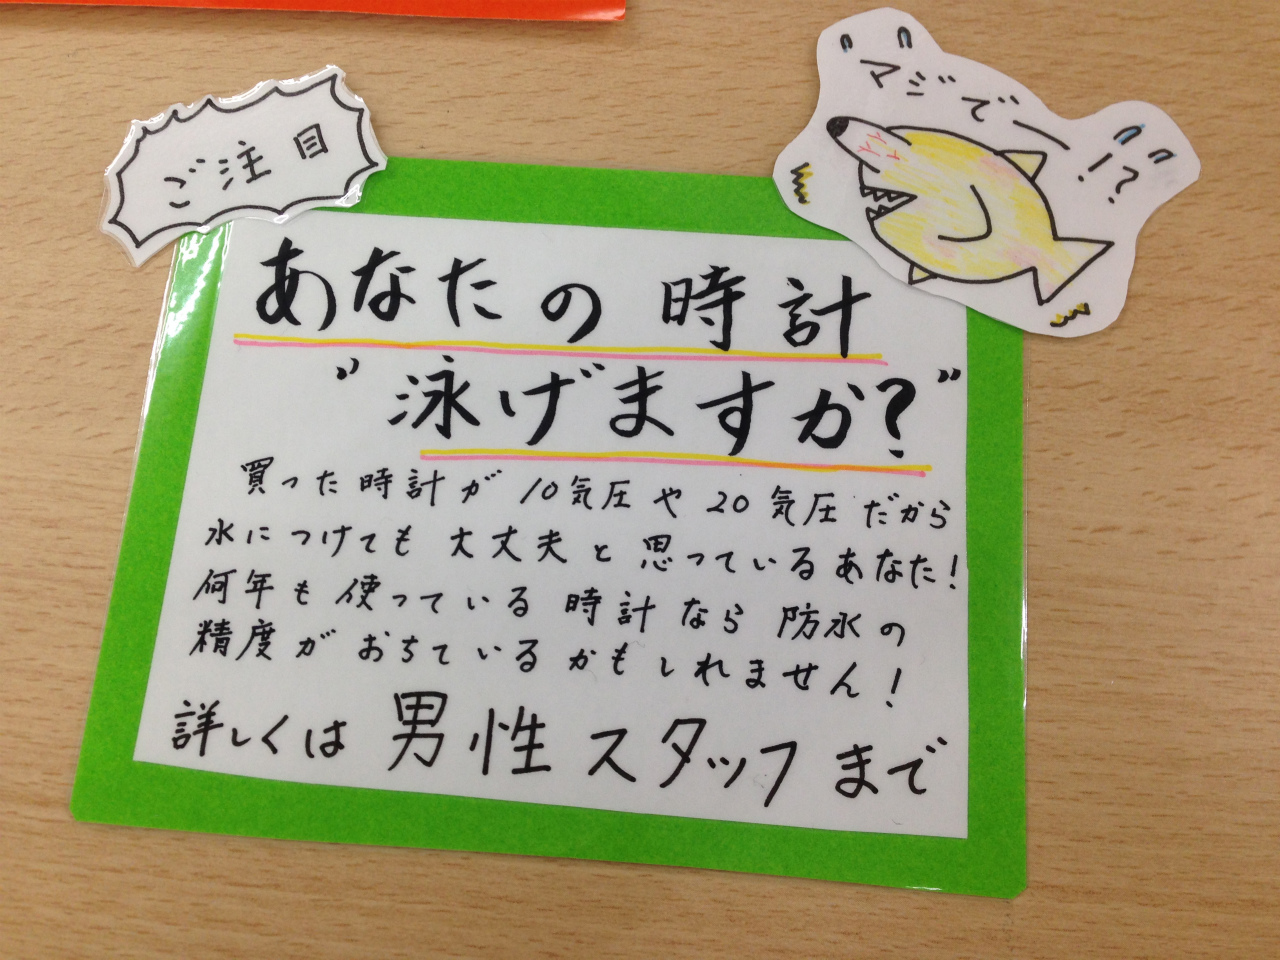 ご注目
マジでー!?
あなたの時計
"泳げますか?"
買った時計が10気圧や20気圧だから
水につけても大丈夫と思っているあなた!
何年も使っている時計なら防水の
精度がおちているかもしれません!
詳しくは男性スタッフまで